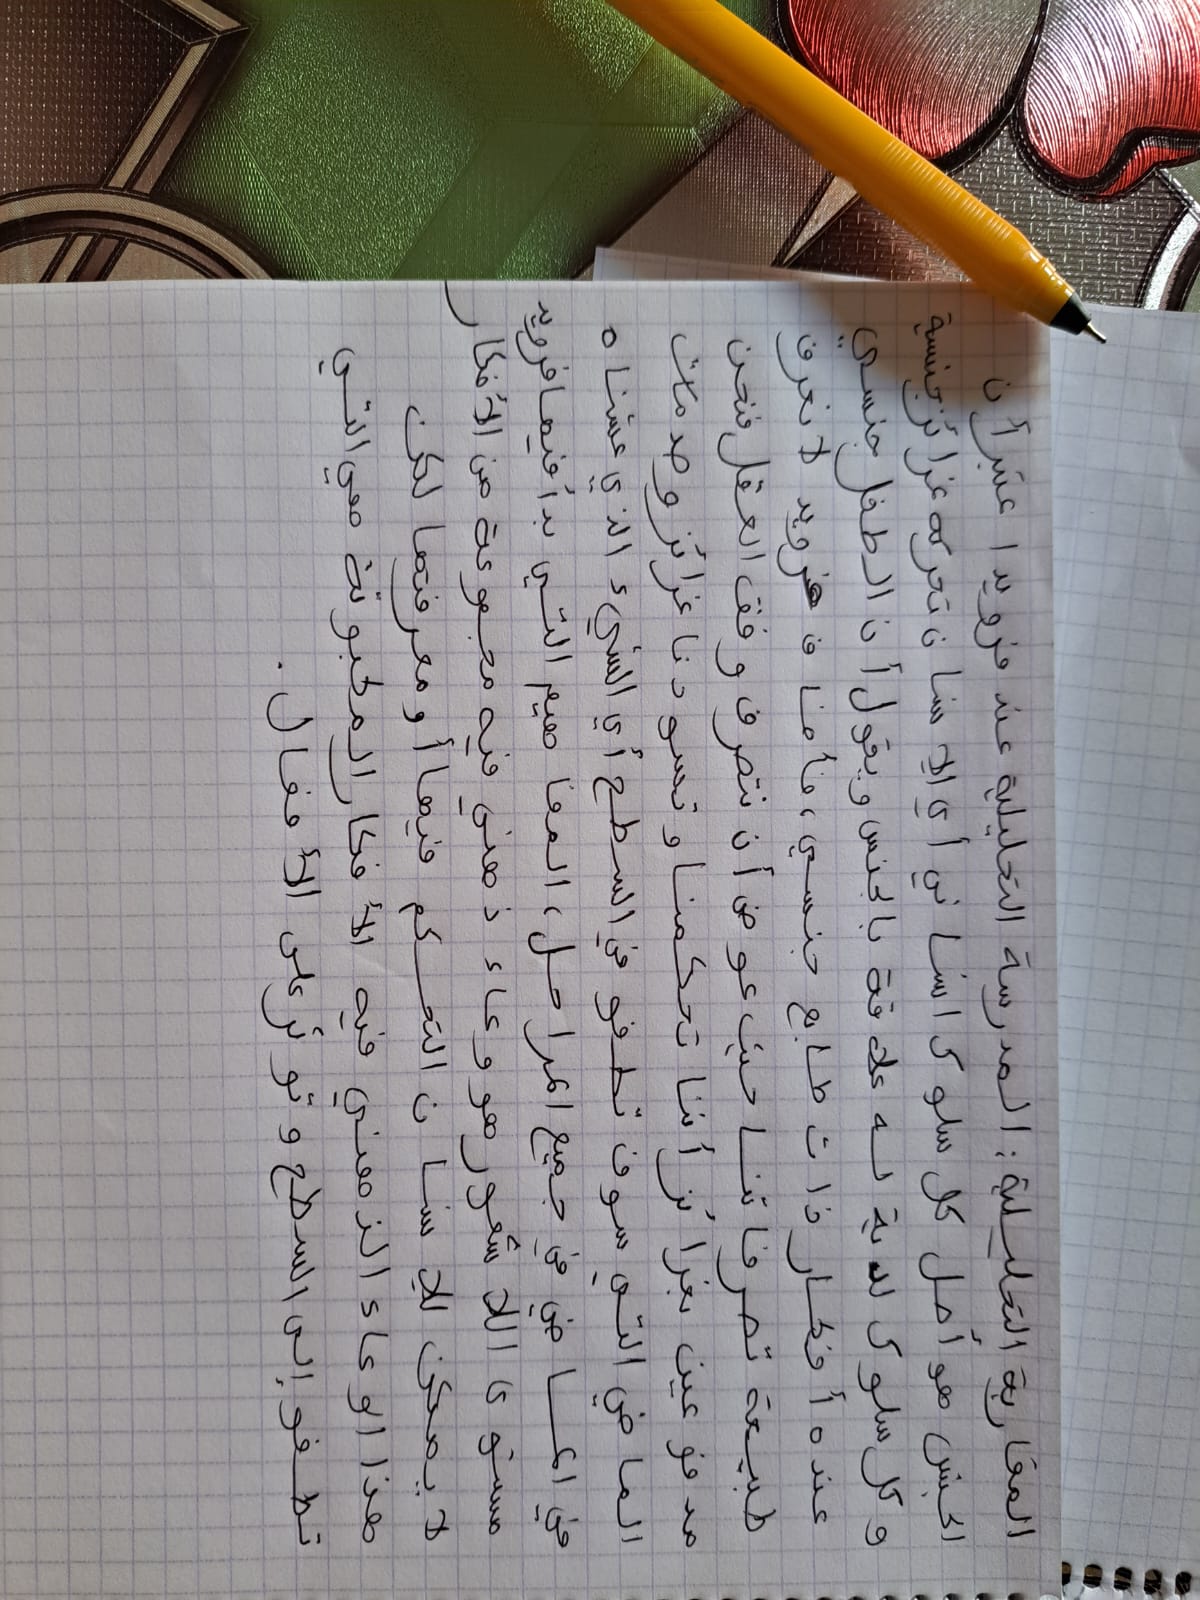 المقاربة التحليلية : المدرسة التحليلية عند فرويد اعتبر أن
الجنس هو أصل كل سلوك انساني أي الإنسان تحركه غرائز جنسية
وكل سلوك لدية له علاقة بالجنس ويقول أن الطفل جنسي
عنده أفكار ذات طابع جنسي، فأضاف فرويد لا نعرف
طبيعة تصرفاتنا حيث عوض أن نتصرف وفق العقل فنحن
مدفوعين بغرائز أننا تحكمنا وتسودنا غرائز وصدمات
الماضي التي سوف تطفو في السطح أي الشيء الذي عشناه
في الماضي في جميع المراحل، المفاهيم التي بدأ فيها فرويد
مستوى اللاشعور هو وعاء ذهني فيه مجموعة من الأفكار
لا يمكن للإنسان التحكم فيها أو معرفتها لكن
هذا الوعاء الذهني فيه الأفكار المكبوتة هي التي
تطفو إلى السطح وتوثر على الأفعال .